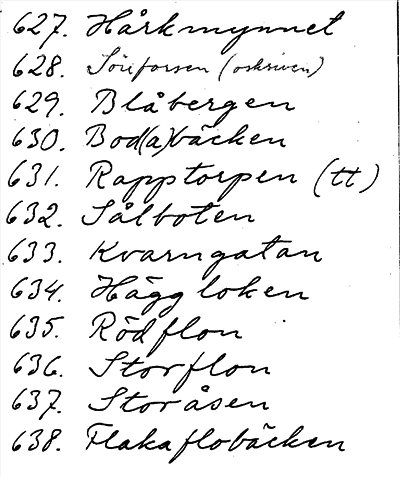 627. Hårkmynnet
628. Söreforsen (oskriven)
629. Blåbergen
630. Bod(a)bäcken
631. Rapptorpen (tt)
632. Sålboten
633. Kvarngatan
634. Hägg loken
635. Rödflon
636. Storflon
637. Storåsen
638. Flakaflobäcken